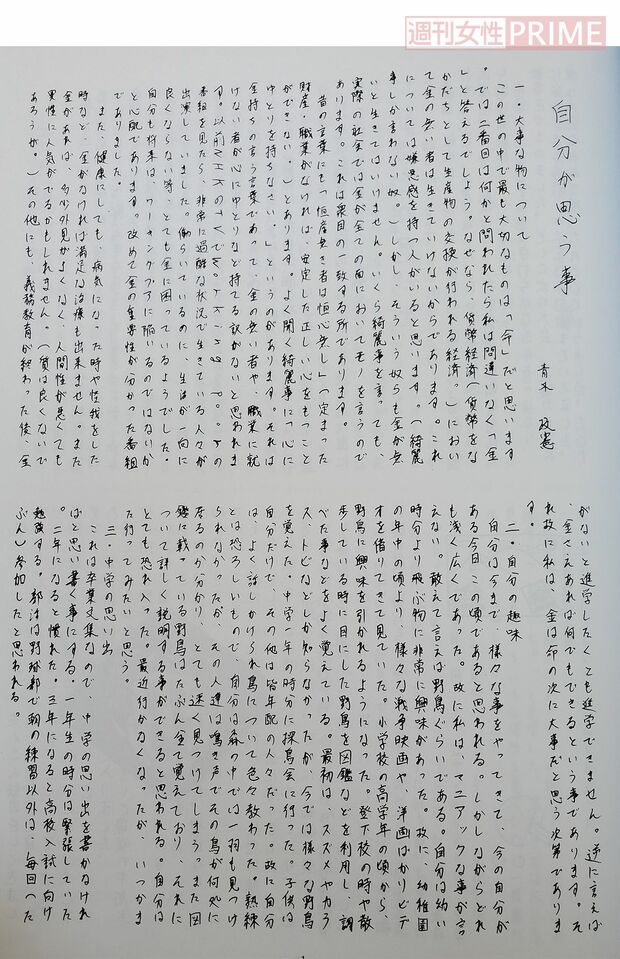 週刊女性PRIME
自分が思う事
青木 政憲
一・大事な物について
この世の中で最も大切なものは「命」だと思います
。では二番目は何かと問われたら私は間違いなく「金
」と答えるでしょう。なぜなら、貨幣経済(貨幣をな
かだちとして生産物の交換が行われる経済。)におい
て金の無い者は生きていけないからであります。これ
については嫌悪感を持つ人がいると思います。(綺麗
事しか言わない奴。)しかし、そういう奴らも金が無
いと生きてはいけません。いくら綺麗事を言っても、
実際の社会では金が全ての面においてモノを言うので
あります。これは衆目の一致する所であります。
昔の言葉にも「恒産無き者は恒心無し」(定まった
財産・職業がなければ、安定した正しい心をもつこと
ができない。)とあります。よく聞く綺麗事に「心に
ゆとりを持ちなさい。」というのがあります。それは
金持ちの言う言葉であって、金の無い者や、職業に就
けない者が心にゆとりなど持てる訳がないと思われま
す。以前NHKのTVで
番組を見たら、非常に過酷な状況で生きている人々が
出演していました。働らいているのに、生活が一向に
良くならない等、とても金に困っているようでした。
自分も将来は、ワーキングプアに陥いるのではないか
と心配であります。改めて金の重要性が分かった番組
でありました。
また、健康にしても、病気になった時や怪我をした
時など、金がなければ満足な治療も出来ません。また
金があれば、多少外見がよくなく、人間性が悪くても
異性に人気がでるかもしれません。(質は良くないで
あろうが。)その他にも、義務教育が終わった後、金
がないと進学したくとも進学できません。逆に言えば
、金さえあれば何でもできるという事であります。そ
れ故に私は、金は命の次に大事だと思う次第でありま
す。
二・自分の趣味
自分は今まで、様々な事をやってきて、今の自分が
ある今日この頃であると思われる。しかしながらどれ
も浅く広くであった。故に私は、マニアックな事が言
えない。敢えて言えば野鳥ぐらいである。自分は幼い
時分より飛ぶ物に非常に興味があった。故に、幼稚園
の年中の頃より、様々な戦争映画や、洋画ばかりビデ
オを借りてきて見ていた。小学校の高学年の頃から、
野鳥に興味を引かれるようになった。登下校の時や散
歩している時に目にした野鳥を図鑑などを利用し、調
べた事などをよく覚えている。最初は、スズメやカラ
ス、トビなどしか知らなかったが、今では様々な野鳥
を覚えた。中学一年の時分に探鳥会に行った。子供は
自分だけで、その他は皆年配の人々だった。故に自分
は、よく話しかけられ鳥について色々教わった。熟練
とは恐ろしいもので、自分は森の中では一羽も見つけ
られなかったが、その人達は鳴き声でその鳥が何処に
居るのかが分かり、とても速く見つけてしまう。また図
鑑に載っている野鳥はたぶん全て覚えており、それに
ついて詳しく説明する事ができると思われる。自分は
とても恐れ入った。最近行かなくなったが、いつかま
た行ってみたいと思う。
三・中学の思い出
これは卒業文集なので、中学の思い出を書かなけれ
ばと思い書く事にする。一年生の時分は緊張していた
。二年になると慣れた。三年になると高校入試に向け
勉強する。部活は野球部で朝の練習以外は、毎回(た
ぶん)参加したと思われる。